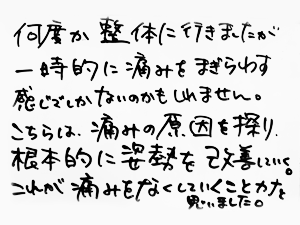 何度か整体に行きましたが
一時的に痛みをまぎらわす
感じでしかないのかもしれません。
こちらは、痛みの原因を探り、
根本的に姿勢を改善していく。
これが痛みをなくしていくことかなと
思いました。